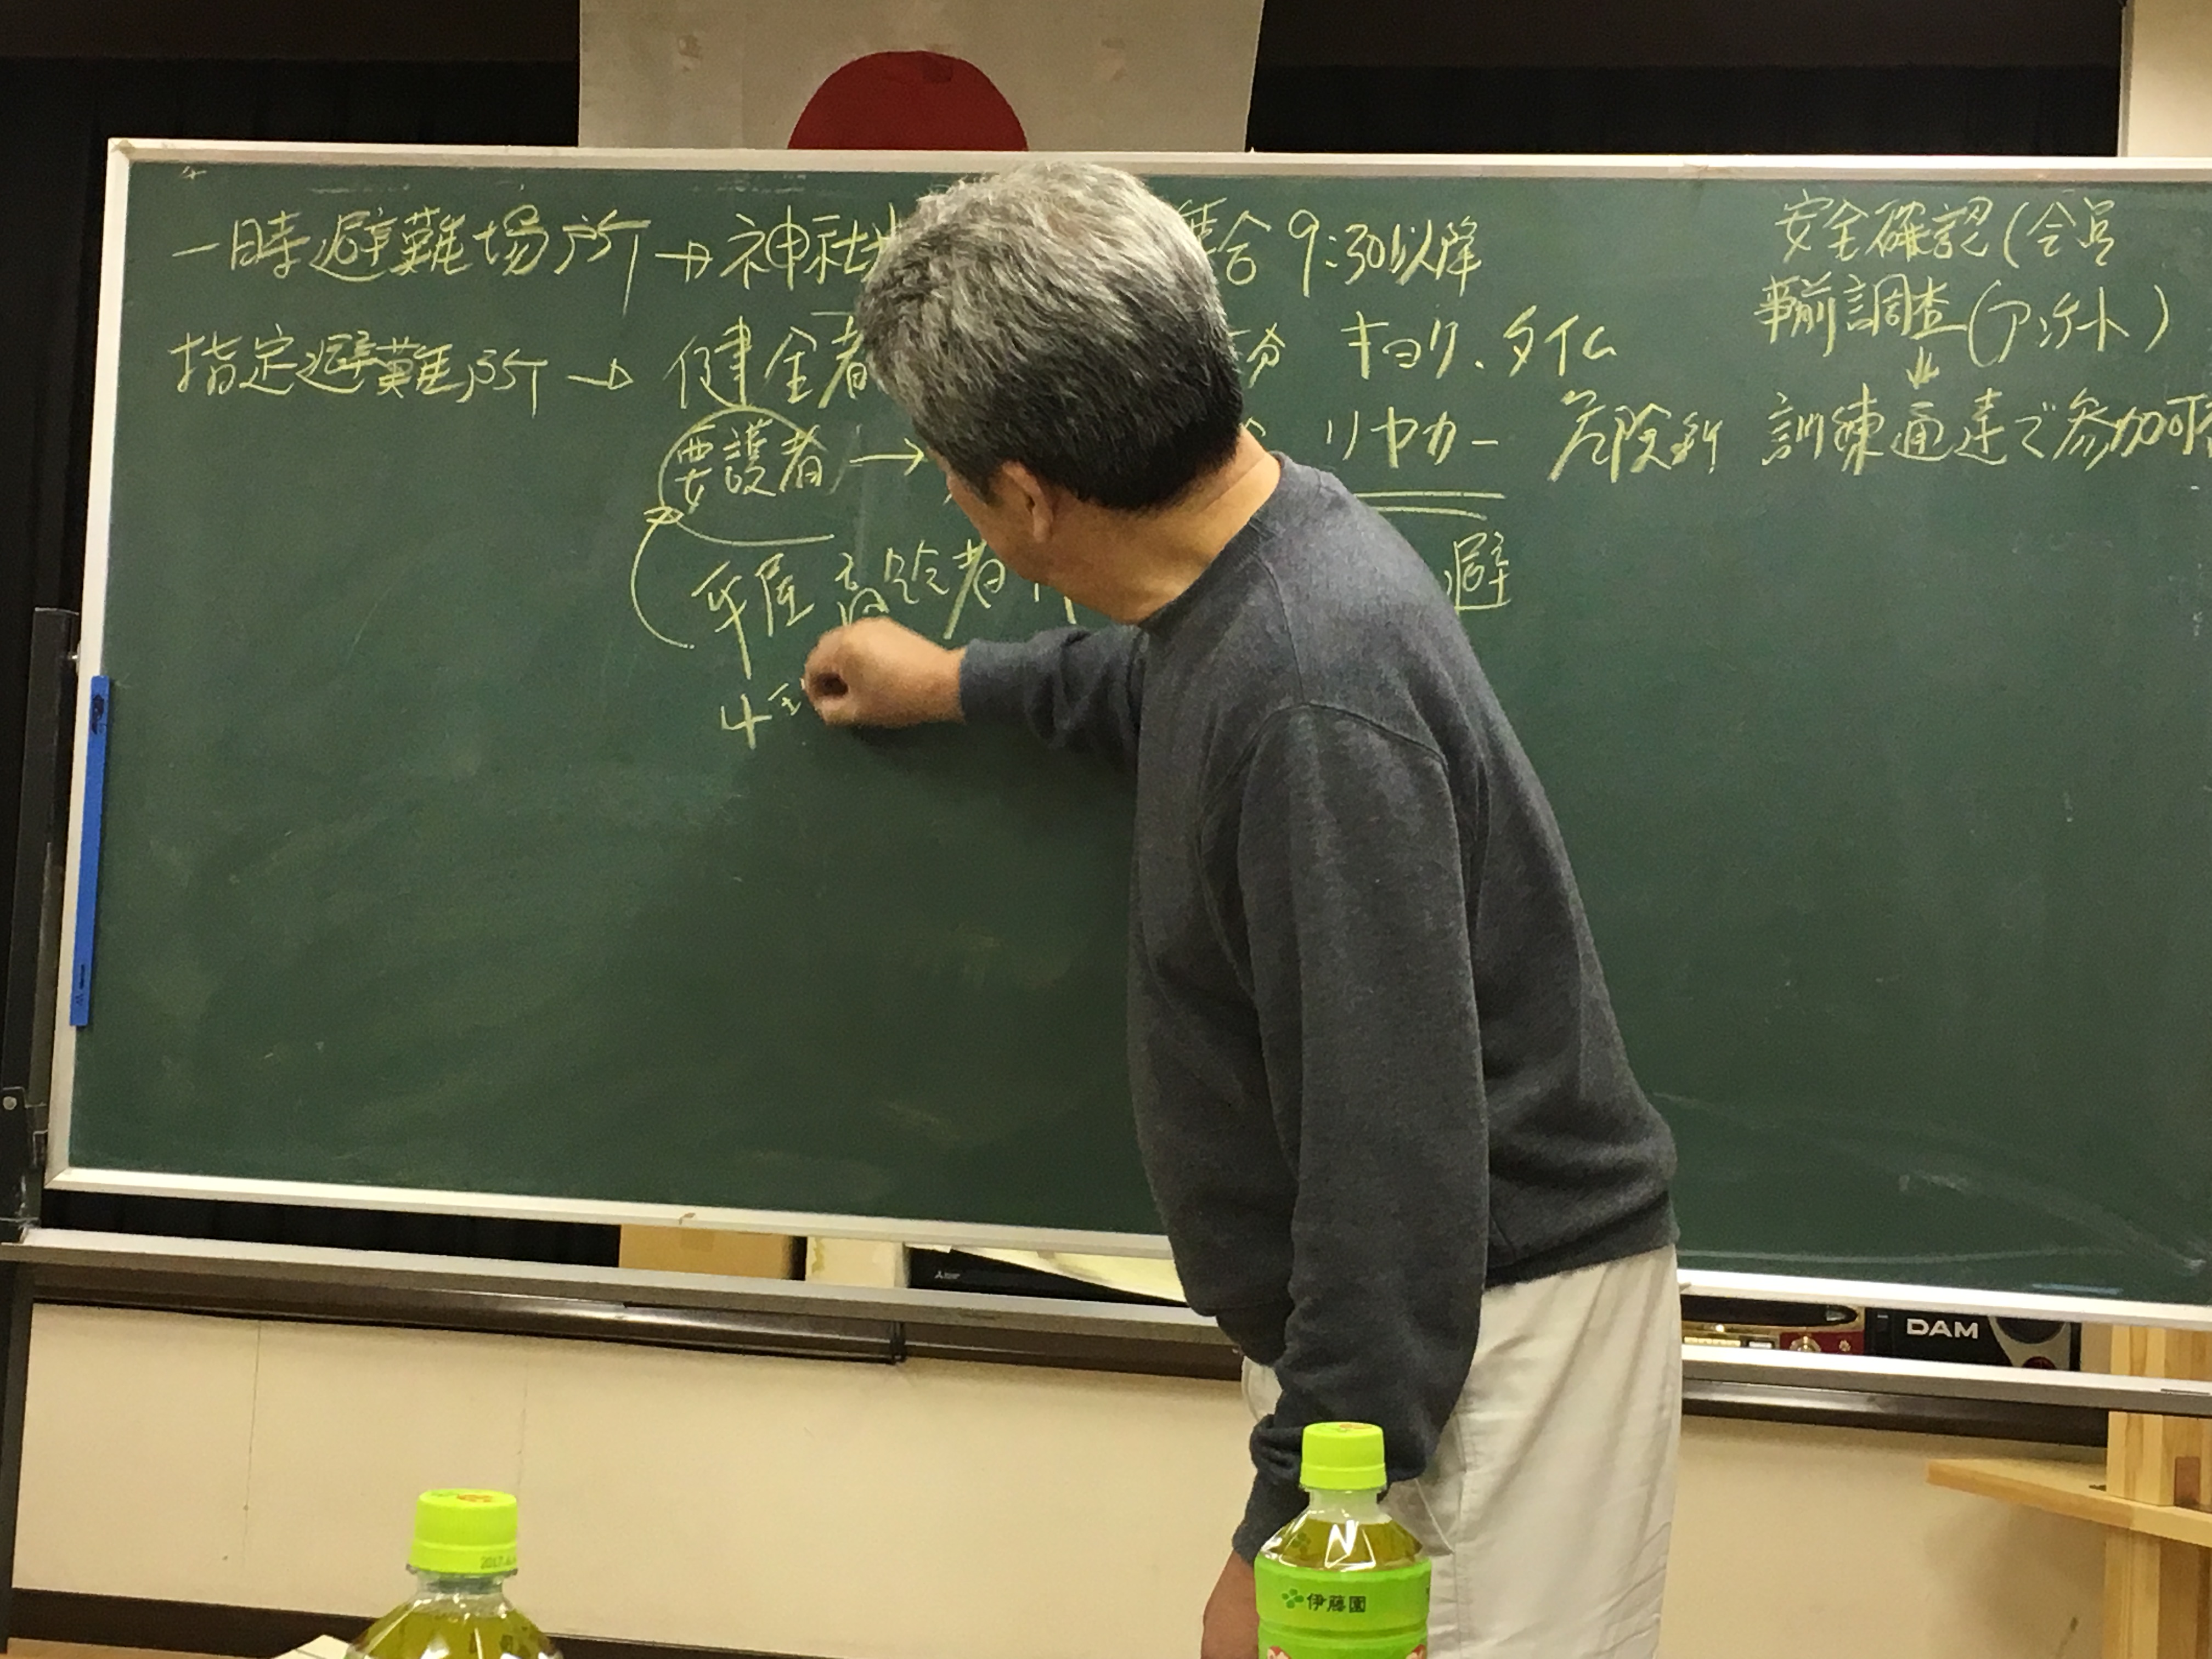 一時避難場所→神社 集合 9:30以降
指定避難所→健全者 分 キョリ、タイム
要護者→ リヤカー 危険
平屋 高齢者 避
安全確認(会員
事前調査(アンケート)
訓練通達で参加可
DAM
伊藤園